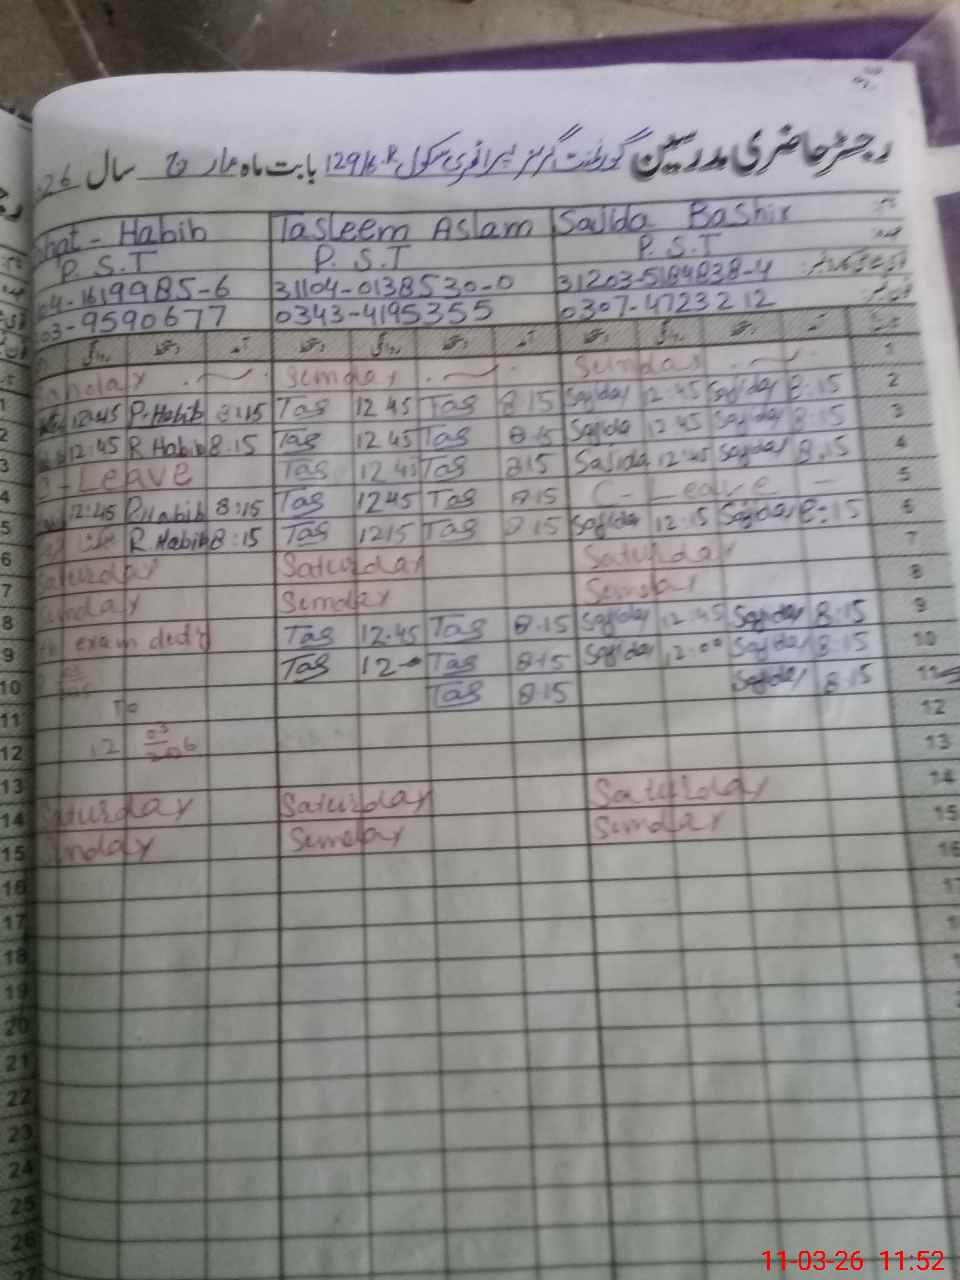 رجسٹر حاضری مدرسین گورنمنٹ گرلز پرائمری سکول 129/6.R بابت ماہ مارچ سال 26
Habib Tasleem Aslam Sajida Bashir
P.S.T P.S.T P.S.T
04-1619985-6 31104-0138530-0 31203-5184838-4
03-9590677 0343-4195355 0307-4723212
Sunday Sunday 1
12:45 R.Habib 8:15 Tas 12 45 Tas 8 15 Sajida 12:45 Sajida 8:15 2
12:45 R Habib 8:15 Tas 12.45 Tas 8.15 Sajida 12 45 Sajida 8:15 3
Leave Tas 12.45 Tas 8.15 Sajida 12:45 Sajida 8.15 4
12:45 R.Habib 8:15 Tas 1245 Tas 8.15 C- Leave - 5
R.Habib 8:15 Tas 1215 Tas 8 15 Sajida 12:15 Sajida 8:15 6
Saturday Saturday Saturday 7
Sunday Sunday Sunday 8
exam duty Tas 12.45 Tas 8.15 Sajida 12:45 Sajida 8.15 9
Tas 12 Tas 8.15 Sajida 12:00 Sajida 8.15 10
Tas 8.15 Sajida 8.15 11
To 12
12 03 13
Saturday Saturday Saturday 14
Sunday Sunday Sunday 15
16
17
18
19
20
21
22
23
24
25
26
11-03-26 11:52